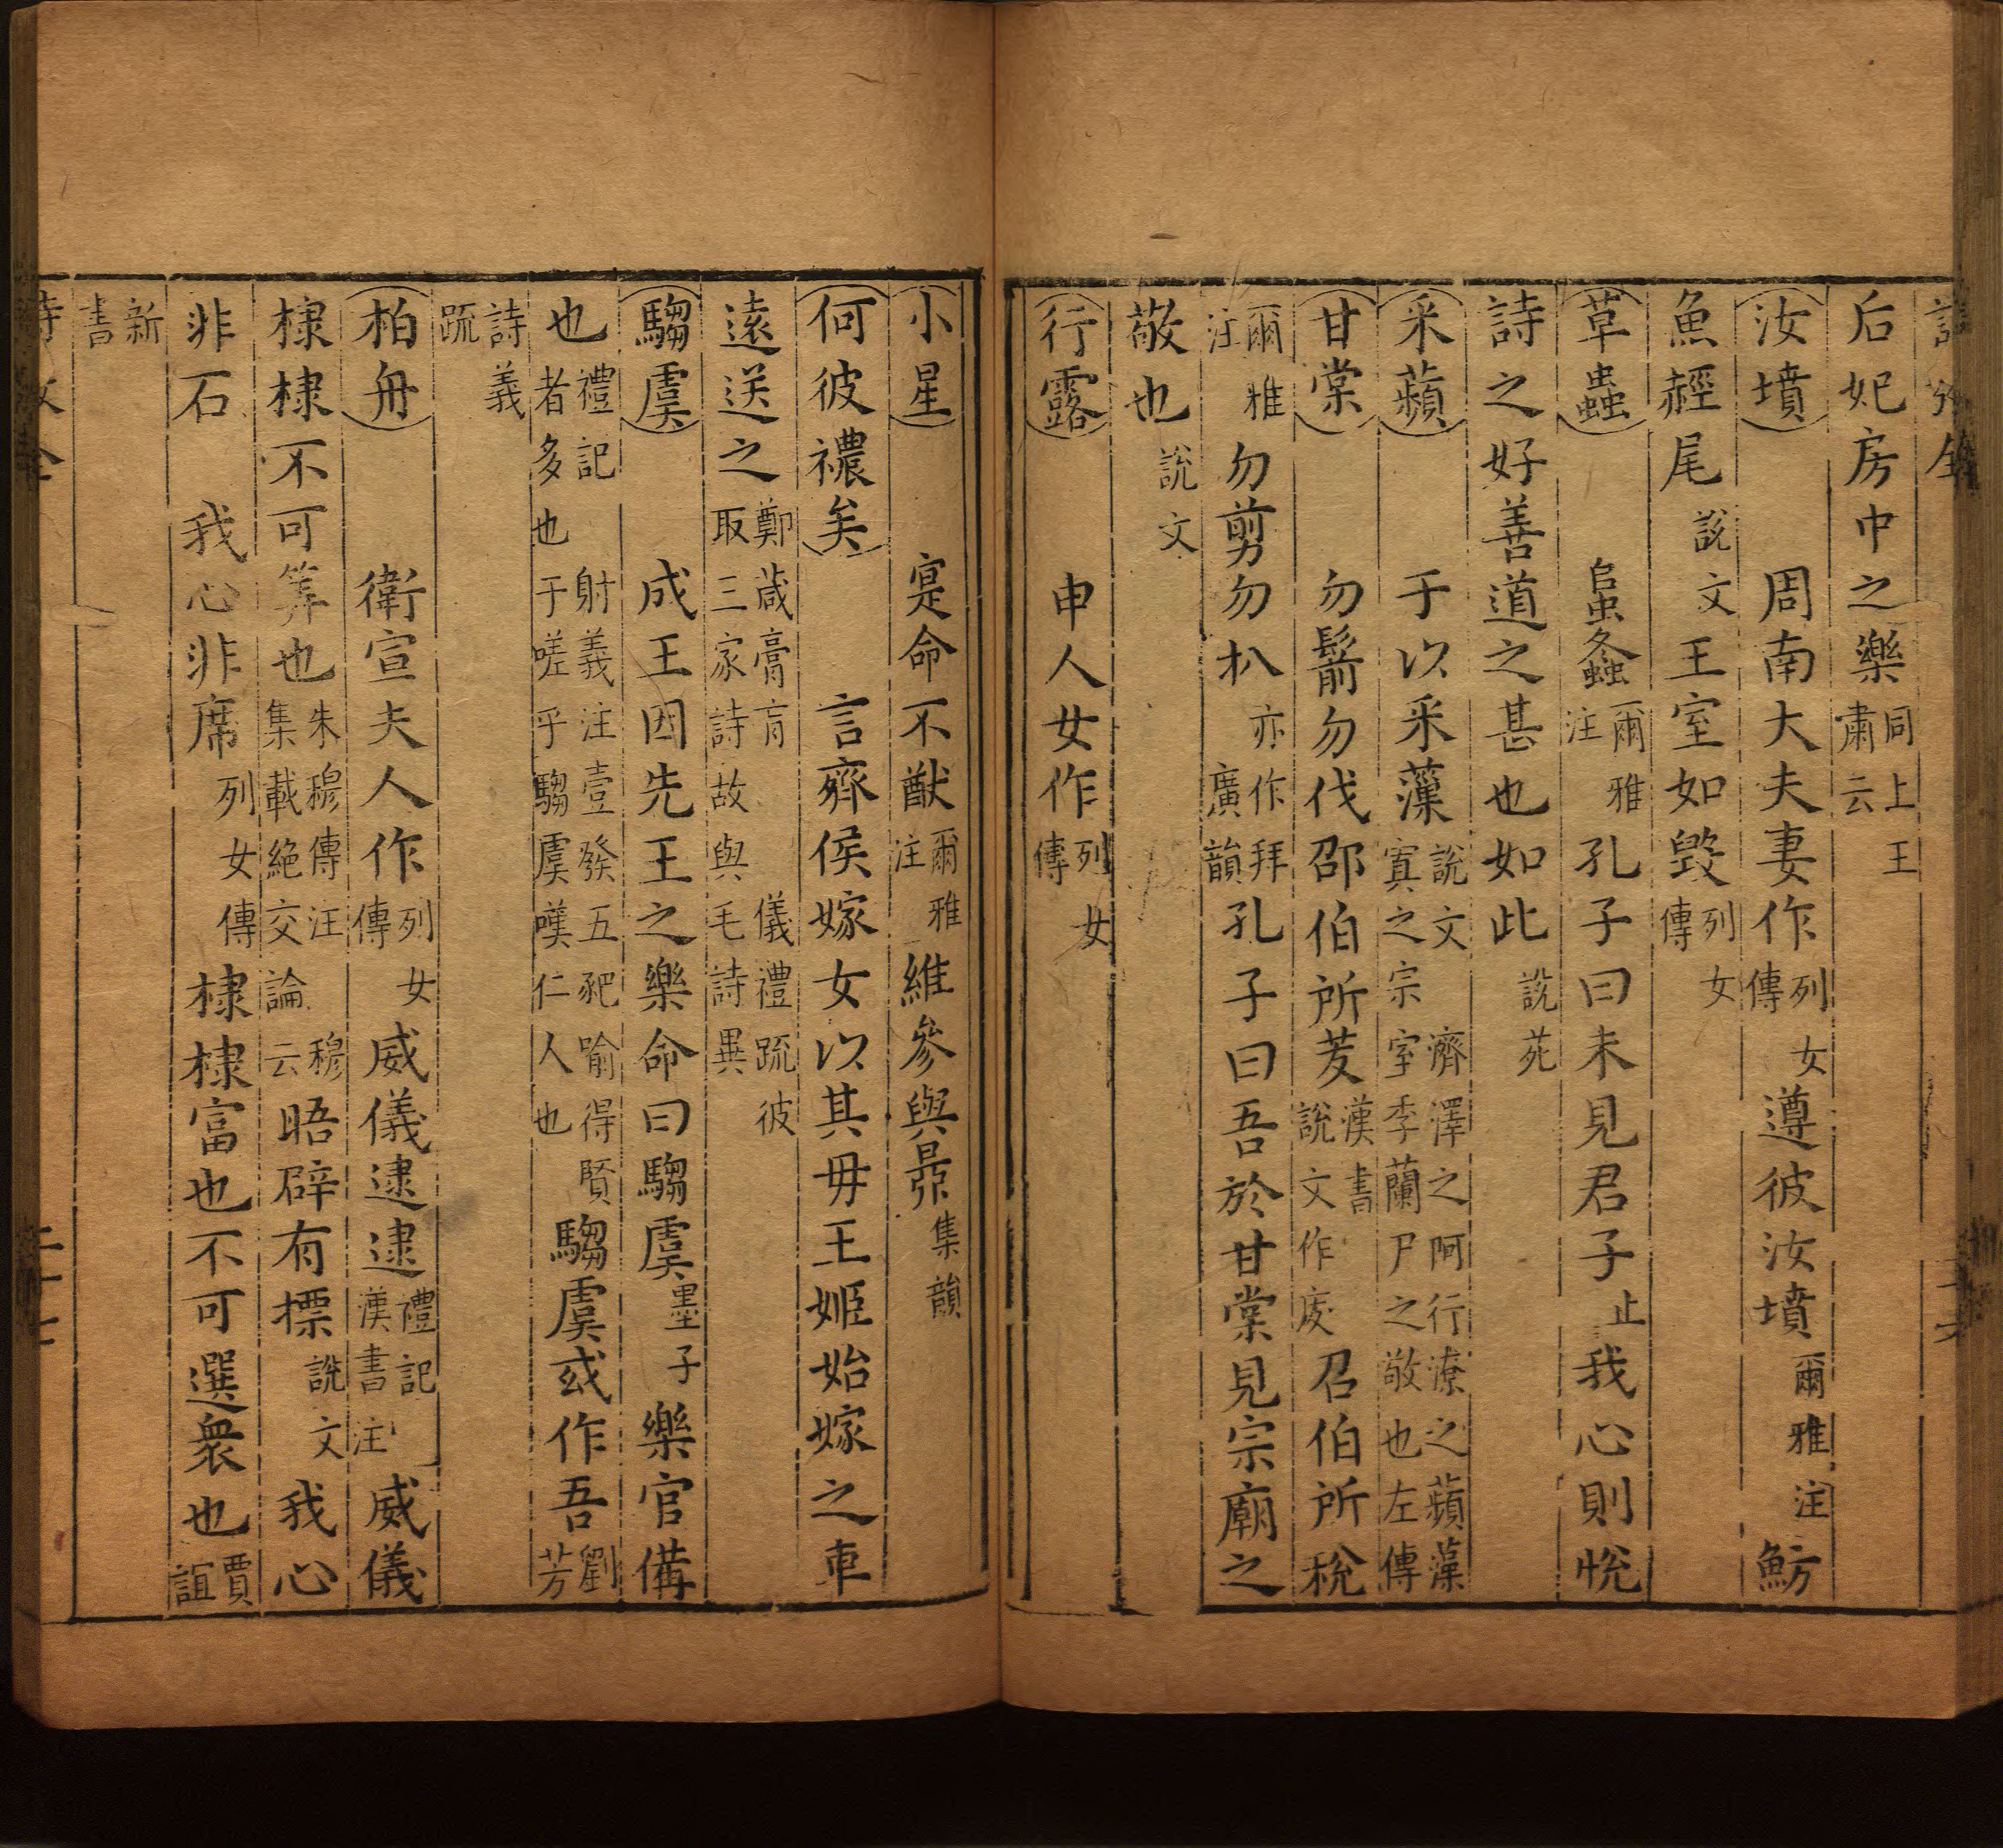 后妃房中之樂同上王肅云
汝墳　周南大夫妻作列女傳　遵彼汝墳爾雅注　魴
魚䞓尾說文　王室如毀列女傳
草蟲　𧒂螽爾雅注　孔子曰未見君子止我心則悅
詩之好善道之甚也如此說苑
采蘋　于以采薻說文　濟澤之阿行潦之蘋藻寘之宗室季蘭尸之敬也左傳
甘棠　勿鬋勿伐邵伯所茇漢書說文作废　召伯所稅
爾雅注　勿剪勿扒亦作拜廣韻　孔子曰吾於甘棠見宗廟之
敬也說文
行露　申人女作列女傳
小星　寔命不猷爾雅注　維參與㬌集韻
何彼襛矣　言齊侯嫁女以其毋王姬始嫁之車
遠送之鄭箴膏肓取三家詩故與毛詩異　儀禮疏彼
騶虞　成王因先王之樂命曰騶虞墨子　樂官備
也禮記射義注壹發五豝喻得賢者多也于嗟乎騶虞嘆仁人也　騶虞或作吾劉芳
詩義疏
柏舟　衛宣夫人作列女傳　威儀逮逮禮記漢書注　威儀
棣棣不可筭也朱穆傳注集載絶交論穆云　晤辟有摽說文　我心
非石　我心非席列女傳　棣棣富也不可選衆也賈誼
新書
二十七